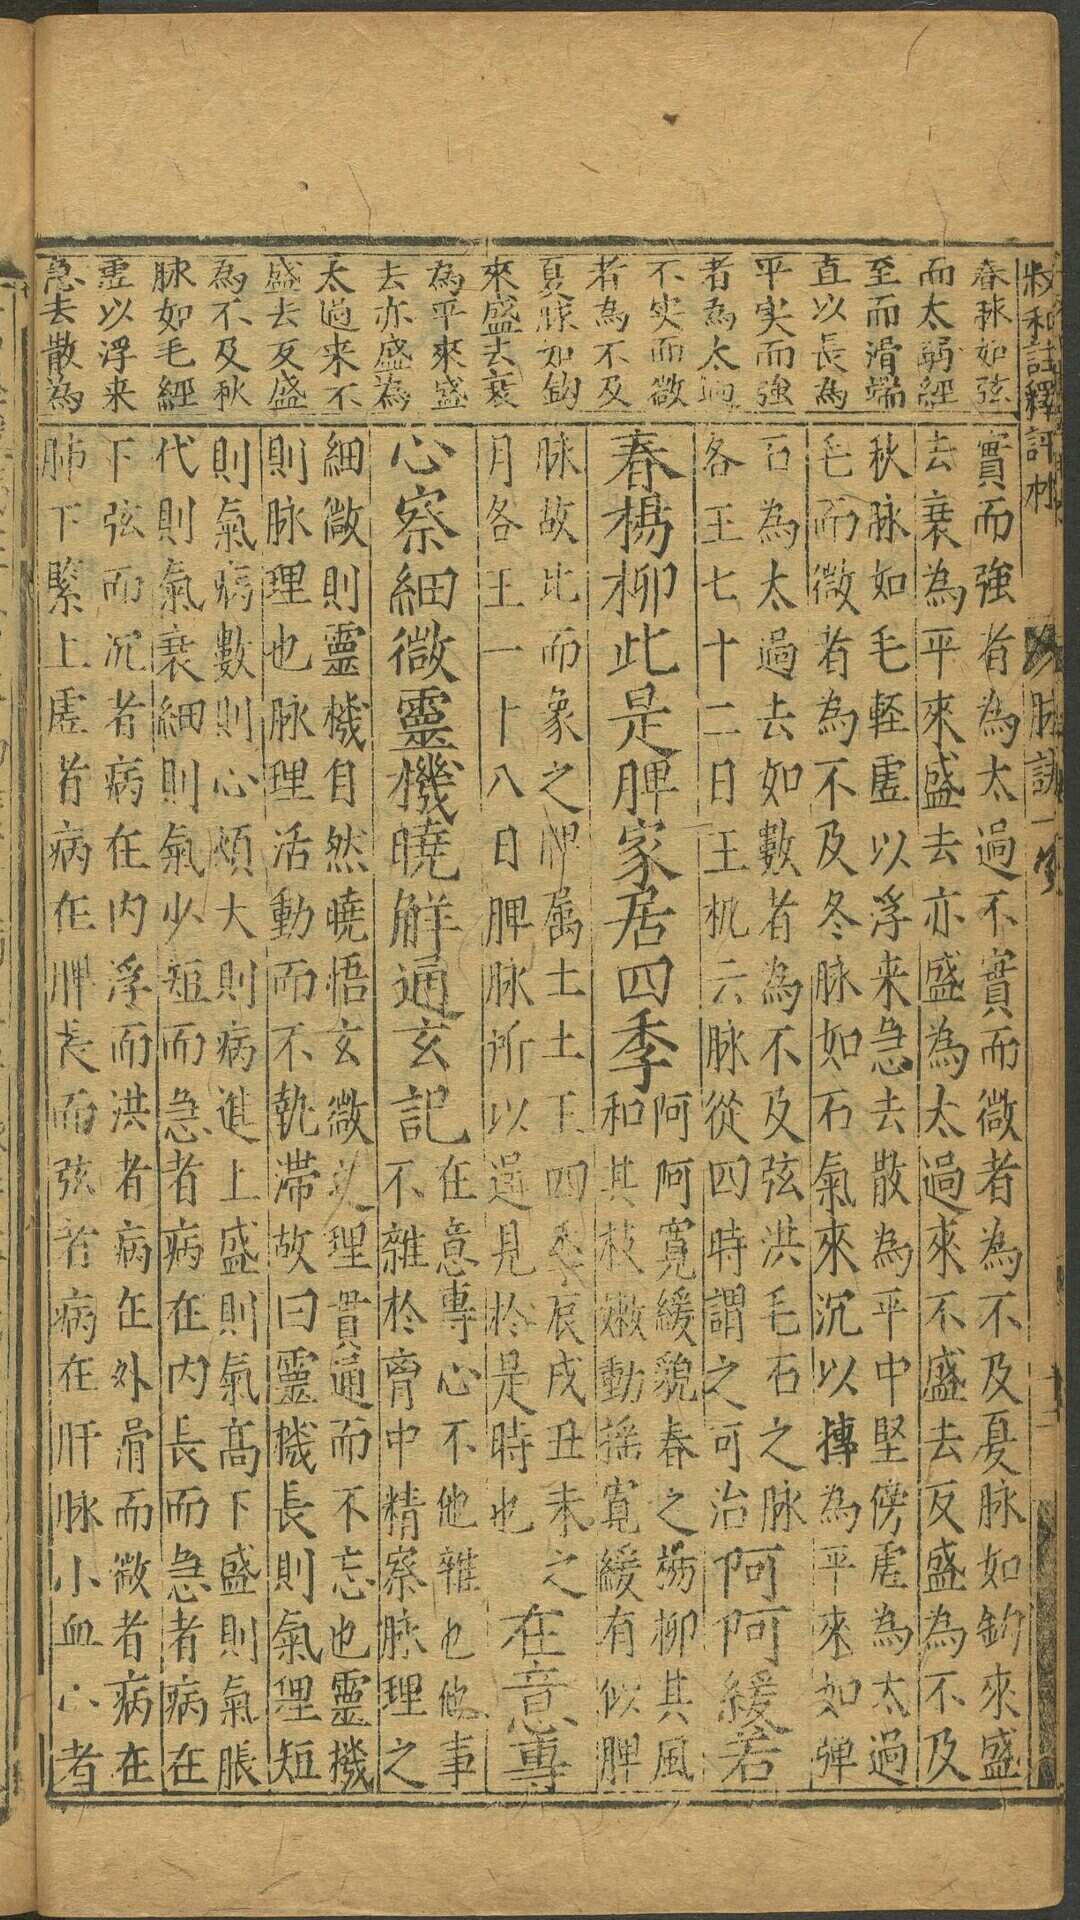 叔和註釋評林　脉訣一　十二
春脉如弦
而太弱經
至而滑端
直以長為
平实而強
者為太過
不实而微
者為不及
夏脉如鈎
來盛去衰
為平來盛
去亦盛為
太過来不
盛去反盛
為不及秋
脉如毛經
虛以浮来
急去散為
實而強者為太過不實而微者為不及夏脉如鈎來盛
去衰為平來盛去亦盛為太過來不盛去反盛為不及
秋脉如毛輕虛以浮来急去散為平中堅傍虛為太過
毛而微者為不及冬脉如石氣來沉以摶為平來如弹
石為太過去如數者為不及弦洪毛石之脉
各王七十二日王机云脉從四時謂之可治
阿阿緩若
春楊柳此是脾家居四季
阿阿寛緩貌春之楊柳其風
和其枝嫩動搖寛緩有似脾
脉故比而象之脾属土土王四季辰戌丑未之
月各王一十八日脾脉所以見於是時也
在意專
心察細微靈機曉解通玄記
在意專心不他雜也他事
不雜於胷中精察脉理之
細微則靈機自然曉悟玄微之理貫通而不忘也靈機
則脉理也脉理活動而不執滞故曰靈機長則氣理短
則氣病數則心煩大則病進上盛則氣高下盛則氣脹
代則氣衰細則氣少短而急者病在内長而急者病在
下弦而沉者病在内浮而洪者病在外滑而微者病在
肺下緊上虛者病在脾長而弦者病在肝脉小血少者